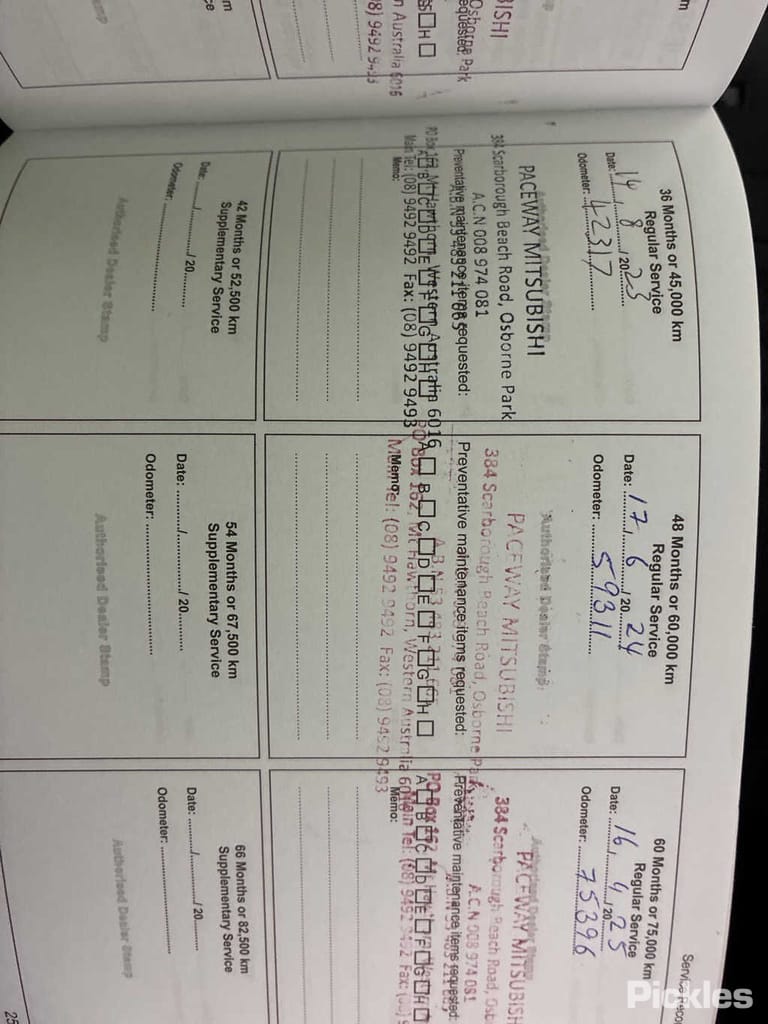 Service Reco
36 Months or 45,000 km
Regular Service
Date: 14 / 8 / 20 23
Odometer: 42317
Authorised Dealer Stamp
PACEWAY MITSUBISHI
384 Scarborough Beach Road, Osborne Park
A.C.N 008 974 081
Preventative maintenance items requested:
PO Box 162, Mt Hawthorn, Western Australia 6016
A B C D E F G H
Main Tel: (08) 9492 9492 Fax: (08) 9492 9493
Memo:
48 Months or 60,000 km
Regular Service
Date: 17 / 6 / 20 24
Odometer: 59311
Authorised Dealer Stamp
PACEWAY MITSUBISHI
384 Scarborough Beach Road, Osborne Park
Preventative maintenance items requested:
A B C D E F G H
PO Box 162, Mt Hawthorn, Western Australia 6016
Memo:
Main Tel: (08) 9492 9492 Fax: (08) 9492 9493
60 Months or 75,000 km
Regular Service
Date: 16 / 4 / 20 25
Odometer: 75396
PACEWAY MITSUBISH
384 Scarborough Beach Road, Osb
A.C.N 008 974 081
Preventative maintenance items requested:
PO Box 162
A B C D E F G H
Main Tel: (08) 9492 9492 Fax: (08)
Memo:
42 Months or 52,500 km
Supplementary Service
Date: / / 20
Odometer:
Authorised Dealer Stamp
54 Months or 67,500 km
Supplementary Service
Date: / / 20
Odometer:
Authorised Dealer Stamp
66 Months or 82,500 km
Supplementary Service
Date: / / 20
Odometer:
Authorised Dealer Stamp
25
BISHI
Osborne Park
equested:
H
n Australia 6016
08) 9492 9493
Pickles